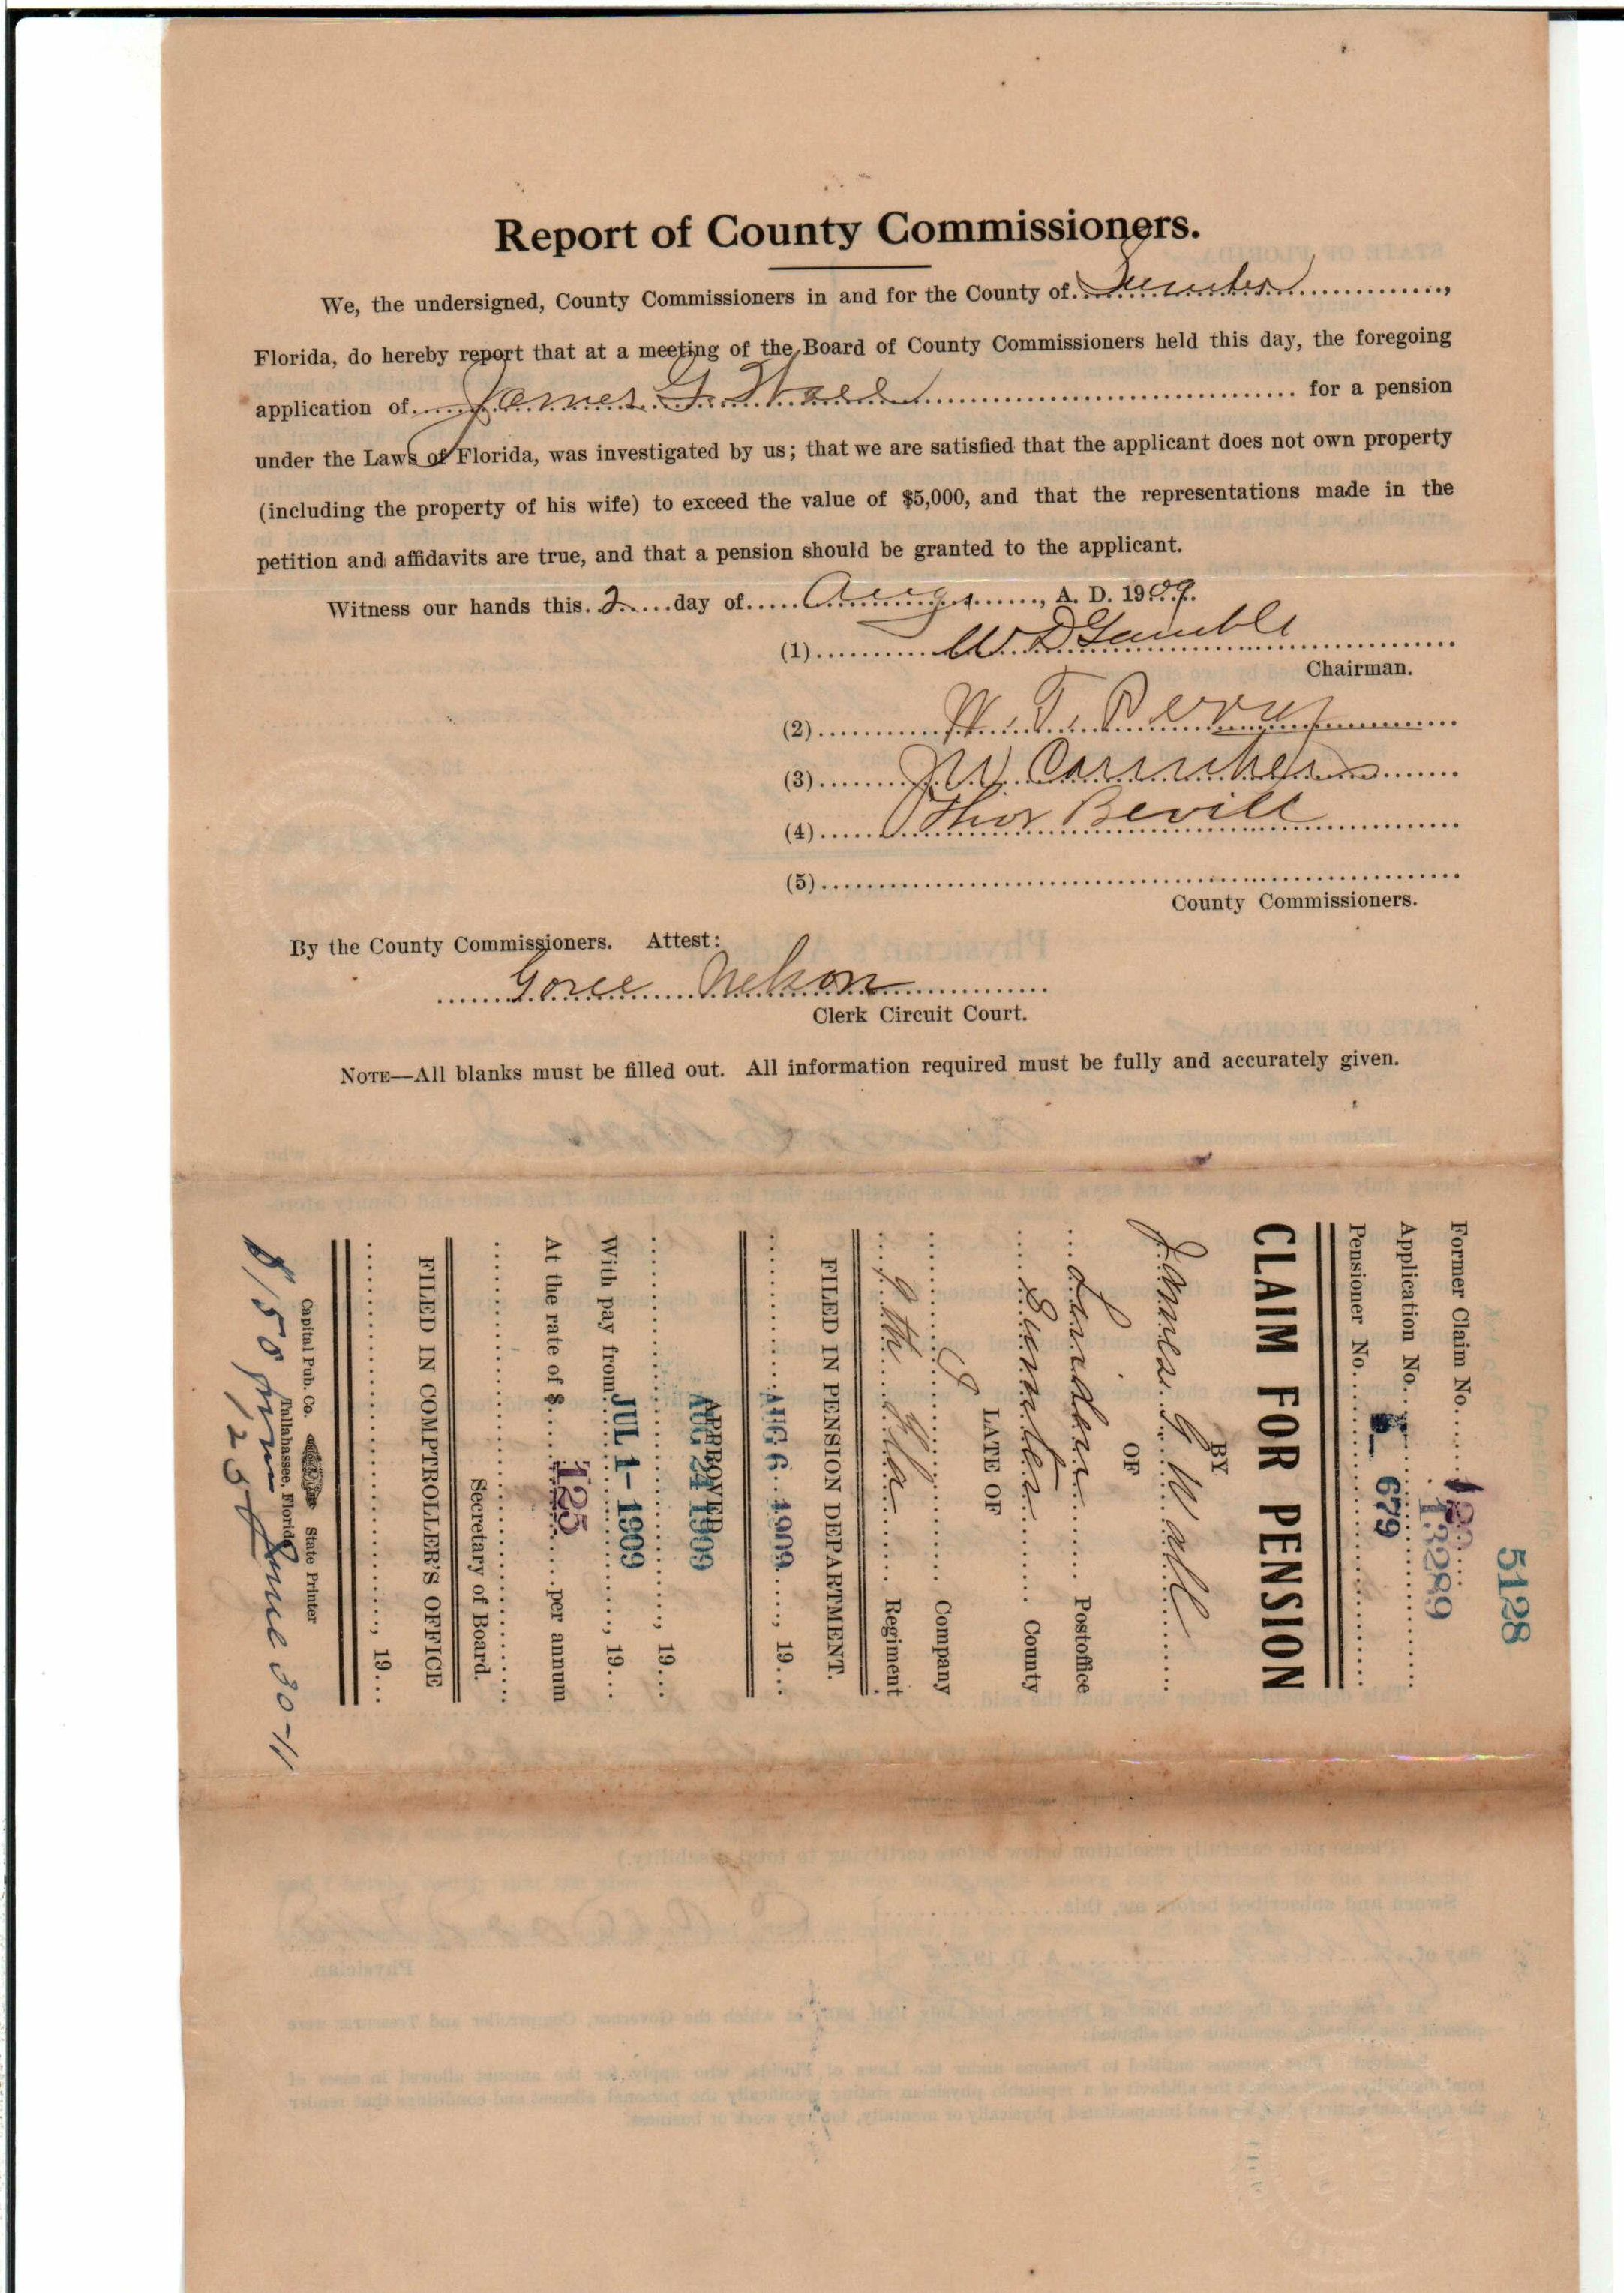 Report of County Commissioners.
We, the undersigned, County Commissioners in and for the County of Sumter,
Florida, do hereby report that at a meeting of the Board of County Commissioners held this day, the foregoing
application of James G. Wall for a pension
under the Laws of Florida, was investigated by us; that we are satisfied that the applicant does not own property
(including the property of his wife) to exceed the value of $5,000, and that the representations made in the
petition and affidavits are true, and that a pension should be granted to the applicant.
Witness our hands this 2 day of Aug, A. D. 1909.
(1) W D Gamble
Chairman.
(2) W. T. Perry
(3) J W Carruthers
(4) Thos Bevill
(5)
County Commissioners.
By the County Commissioners. Attest:
Goree Nelson
Clerk Circuit Court.
NOTE—All blanks must be filled out. All information required must be fully and accurately given.
5128
Former Claim No.
13289
Application No. 679
Pensioner No.
CLAIM FOR PENSION
BY
James G Wall
OF
Linden Postoffice
Sumter County
LATE OF
G Company
9th Fla Regiment
FILED IN PENSION DEPARTMENT.
AUG 6 1909, 19
APPROVED
AUG 24 1909
, 19
With pay from JUL 1-1909, 19
At the rate of $ 125 per annum
Secretary of Board.
FILED IN COMPTROLLER'S OFFICE
, 19
Capital Pub. Co. State Printer
Tallahassee, Florida
$150 from June 30-11
125